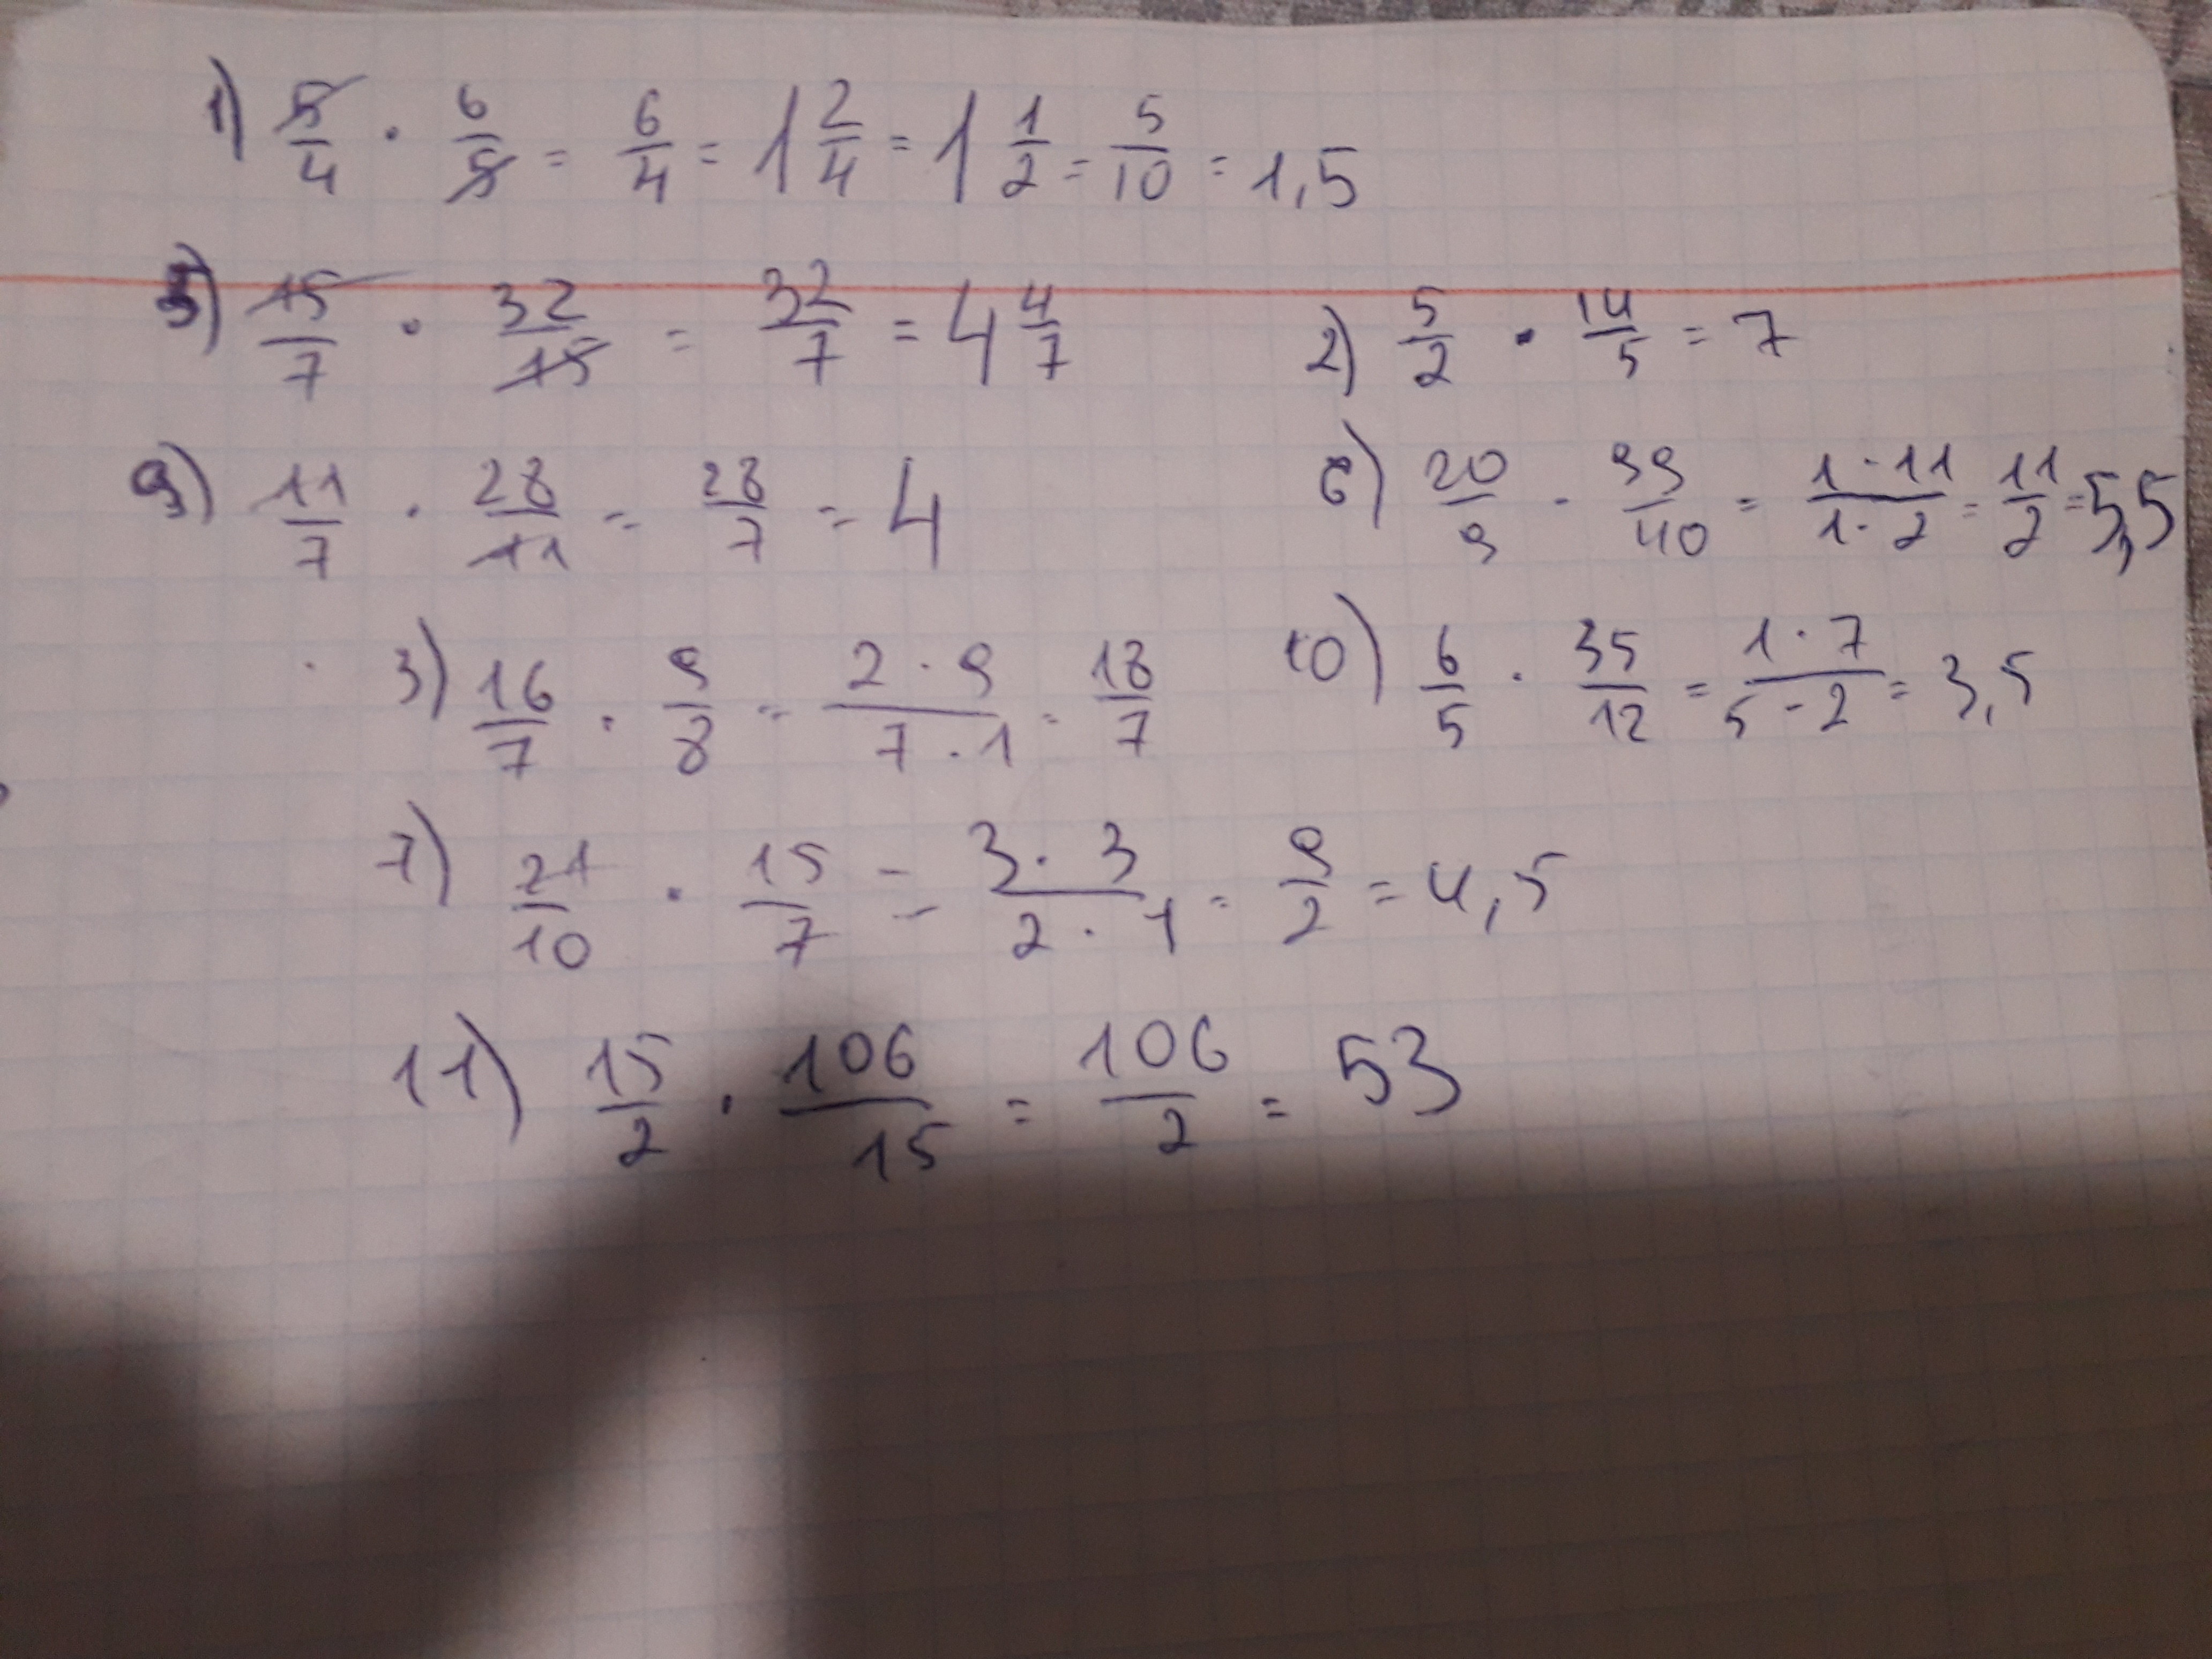 1) 5/4 · 6/5 = 6/4 = 1 2/4 = 1 1/2 = 5/10 = 1,5
5) 15/7 · 32/15 = 32/7 = 4 4/7
2) 5/2 · 14/5 = 7
9) 11/7 · 28/11 = 28/7 = 4
6) 20/9 · 99/40 = 1·11/1·2 = 11/2 = 5,5
3) 16/7 · 9/8 = 2·9/7·1 = 18/7
10) 6/5 · 35/12 = 1·7/5-2 = 3,5
7) 21/10 · 15/7 = 3·3/2·1 = 9/2 = 4,5
11) 15/2 · 106/15 = 106/2 = 53